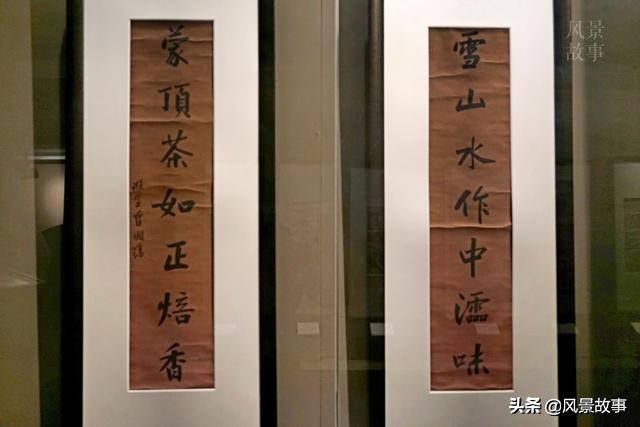 雪山水作中味
蒙頂茶如正焙香
滌生曾國藩
风景
故事
头条 @风景故事